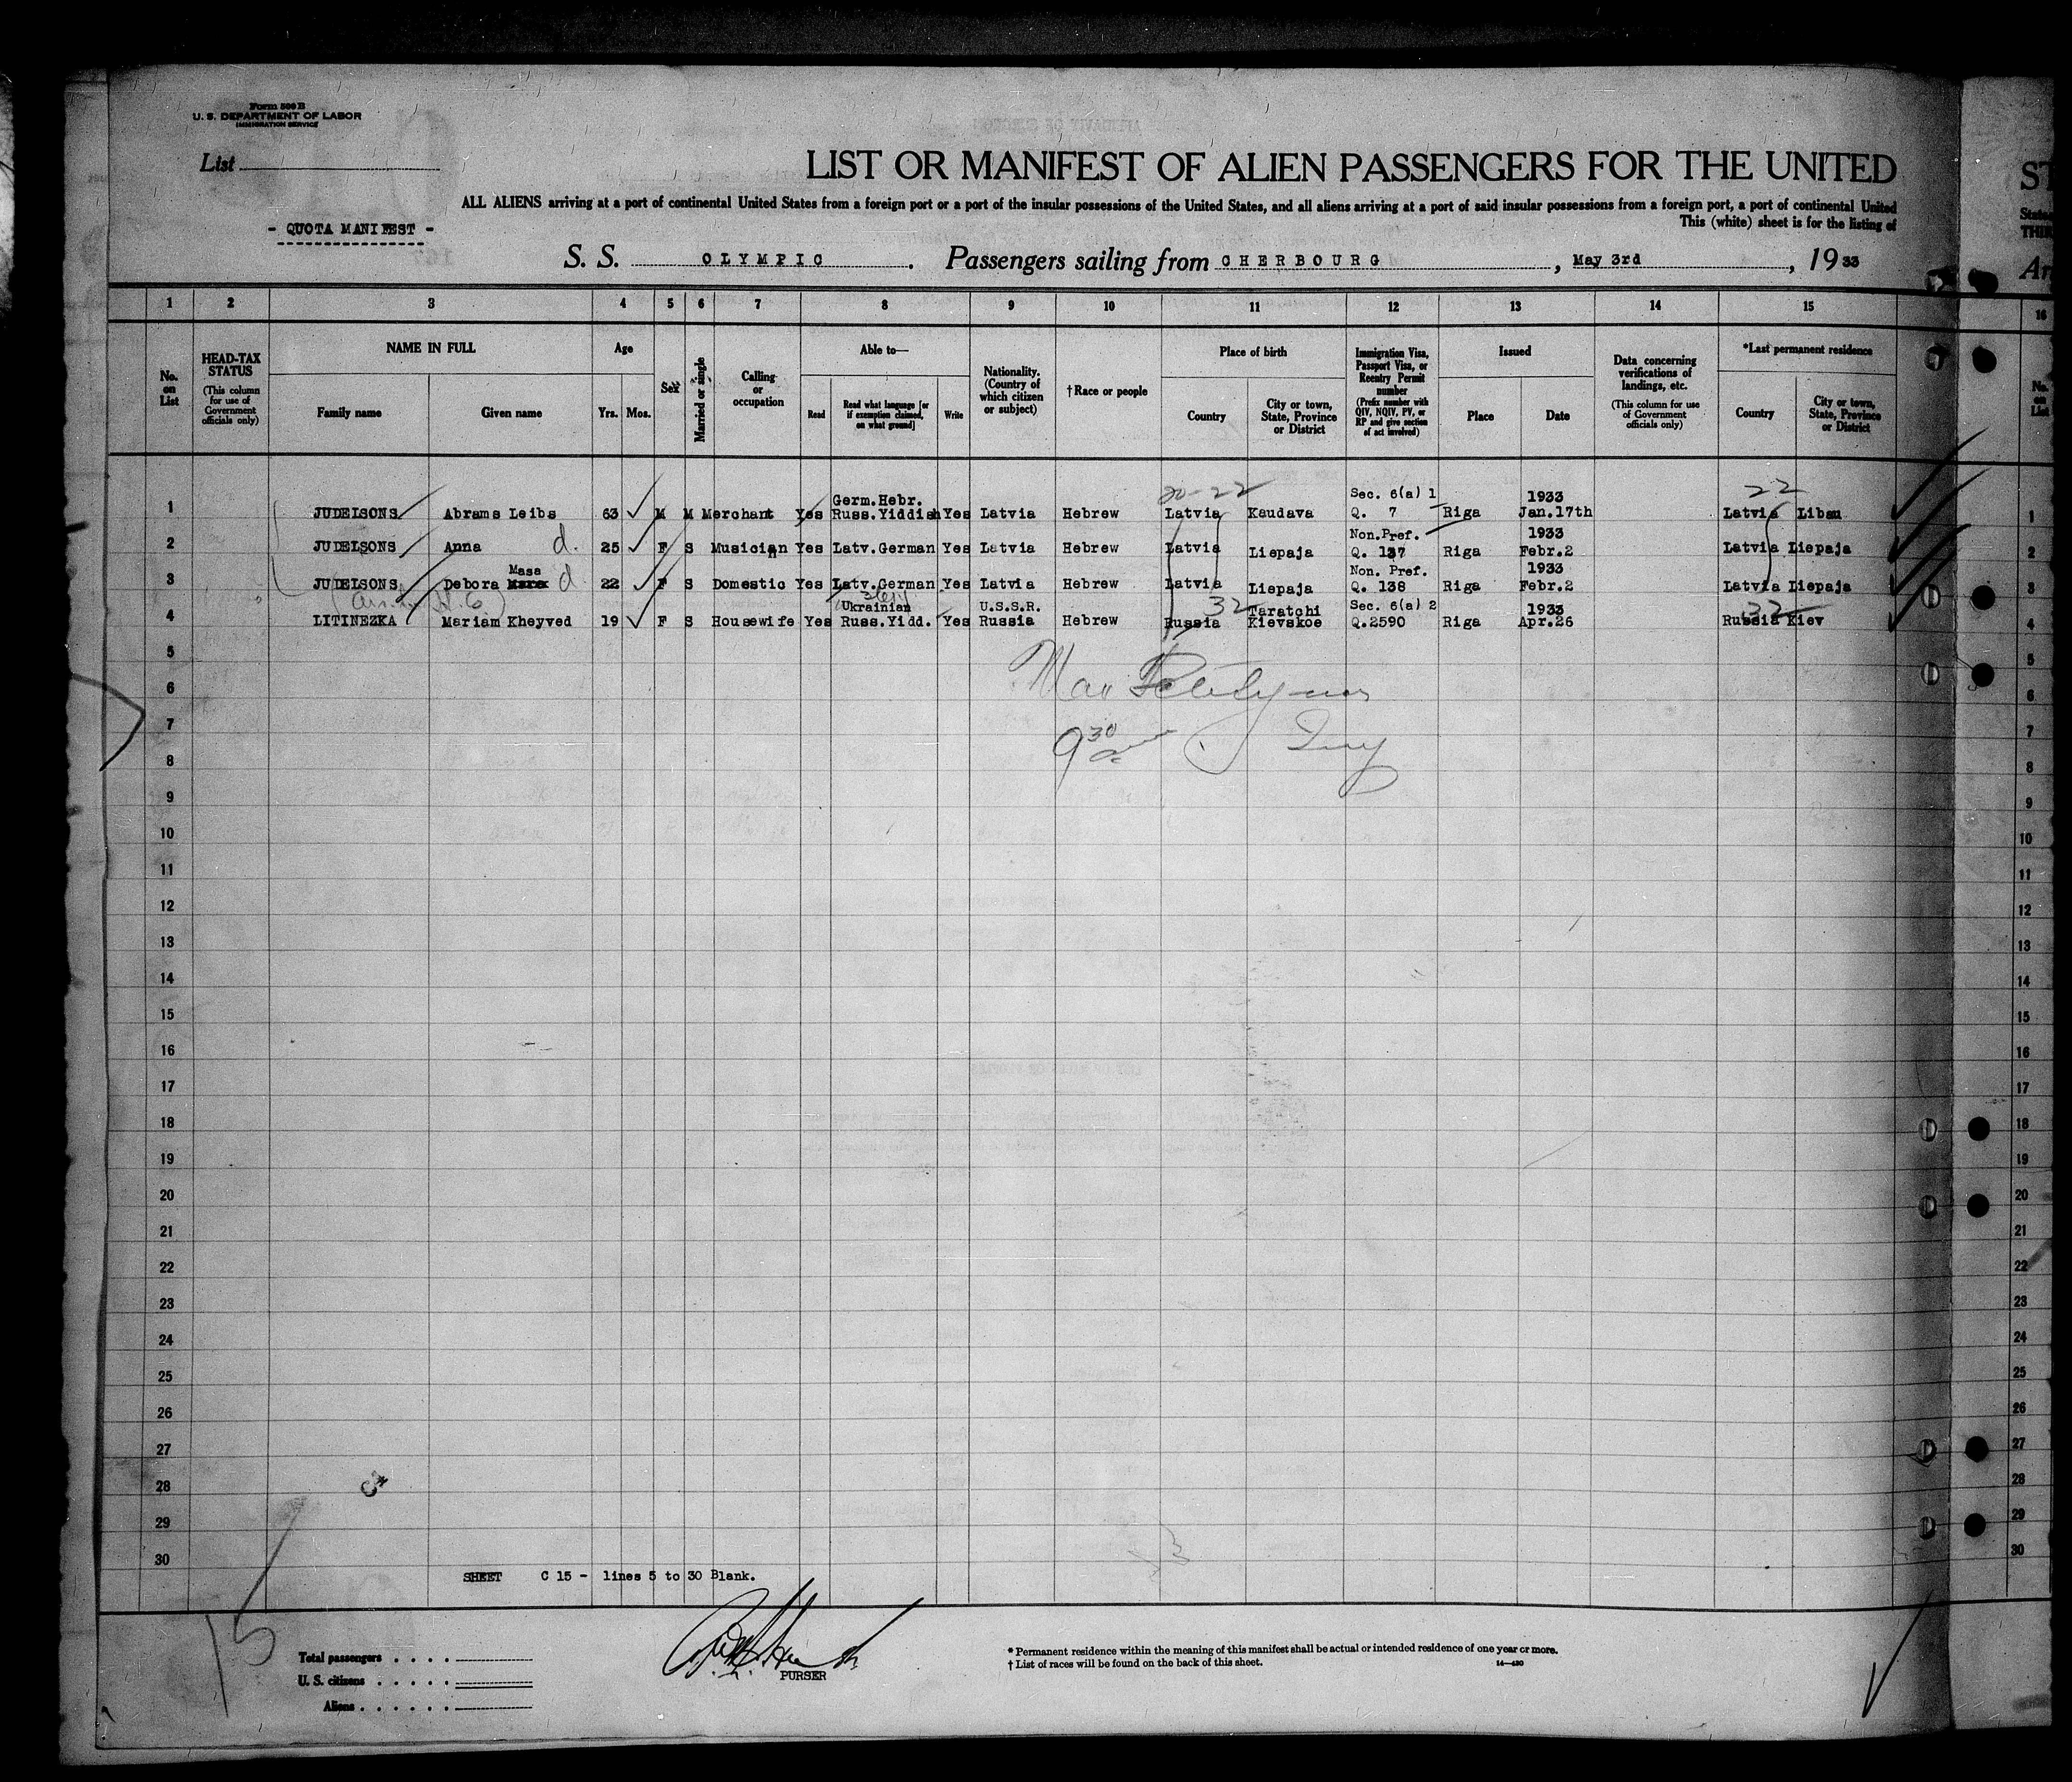 Form 500 B
U. S. DEPARTMENT OF LABOR
IMMIGRATION SERVICE
List
- QUOTA MANIFEST -
LIST OR MANIFEST OF ALIEN PASSENGERS FOR THE UNITED
ST
ALL ALIENS arriving at a port of continental United States from a foreign port or a port of the insular possessions of the United States, and all aliens arriving at a port of said insular possessions from a foreign port, a port of continental United
This (white) sheet is for the listing of
S. S. OLYMPIC. Passengers sailing from CHERBOURG, May 3rd, 1933
1 2 3 4 5 6 7 8 9 10 11 12 13 14 15 16
No. on List
HEAD-TAX STATUS (This column for use of Government officials only)
NAME IN FULL Family name Given name
Age Yrs. Mos.
Sex
Married or single
Calling or occupation
Able to— Read Read what language [or if exemption claimed, on what ground] Write
Nationality. (Country of which citizen or subject)
† Race or people
Place of birth Country City or town, State, Province or District
Immigration Visa, Passport Visa, or Reentry Permit number (Prefix number with QIV, NQIV, PV, or RP and give section of act involved)
Issued Place Date
Data concerning verifications of landings, etc. (This column for use of Government officials only)
*Last permanent residence Country City or town, State, Province or District
No. on List
20-22 22
Germ.Hebr. Sec. 6(a) 1 1933
1 JUDELSONS Abrams Leibs 63 M M Merchant Yes Russ.Yiddish Yes Latvia Hebrew Latvia Kaudava Q. 7 Riga Jan.17th Latvia Libau 1
Non.Pref. 1933
2 JUDELSONS Anna d. 25 F S Musician Yes Latv.German Yes Latvia Hebrew Latvia Liepaja Q. 137 Riga Febr.2 Latvia Liepaja 2
Masa Non. Pref. 1933
3 JUDELSONS Debora d 22 F S Domestic Yes Latv.German Yes Latvia Hebrew Latvia Liepaja Q. 138 Riga Febr.2 Latvia Liepaja 3
Ukrainian U.S.S.R. 32 Taratchi Sec. 6(a) 2 1933 32
4 LITINEZKA Mariam Kheyved 19 F S Housewife Yes Russ.Yidd. Yes Russia Hebrew Russia Kievskoe Q.2590 Riga Apr.26 Russia Kiev 4
5 5
6 6
7 9 30 7
8 8
9 9
10 10
11 11
12 12
13 13
14 14
15 15
16 16
17 17
18 18
19 19
20 20
21 21
22 22
23 23
24 24
25 25
26 26
27 27
28 28
29 29
30 30
SHEET C 15 - lines 5 to 30 Blank.
15
Total passengers
U. S. citizens
Aliens
PURSER
* Permanent residence within the meaning of this manifest shall be actual or intended residence of one year or more.
† List of races will be found on the back of this sheet. 14—430